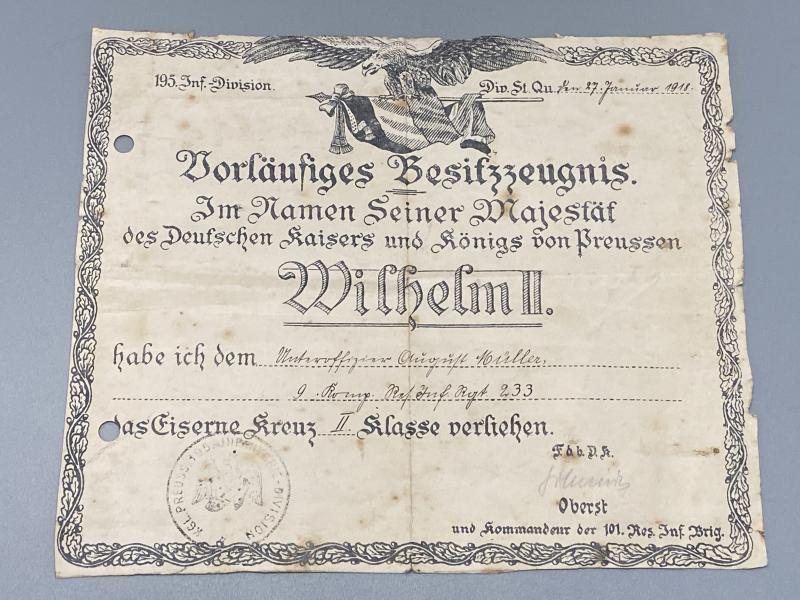 195. Inf.-Division.
Div. St. Qu. den 27. Januar 1918.
Vorläufiges Besitzzeugnis.
Im Namen Seiner Majestät
des Deutschen Kaisers und Königs von Preussen
Wilhelm II.
habe ich dem Unteroffizier August Müller,
9. Komp. Res. Inf. Rgt. 233
das Eiserne Kreuz II Klasse verliehen.
F.d.b.D.K.
Oberst
und Kommandeur der 101. Res. Inf. Brig.
KGL. PREUSS. 195. INFANTERIE-DIVISION